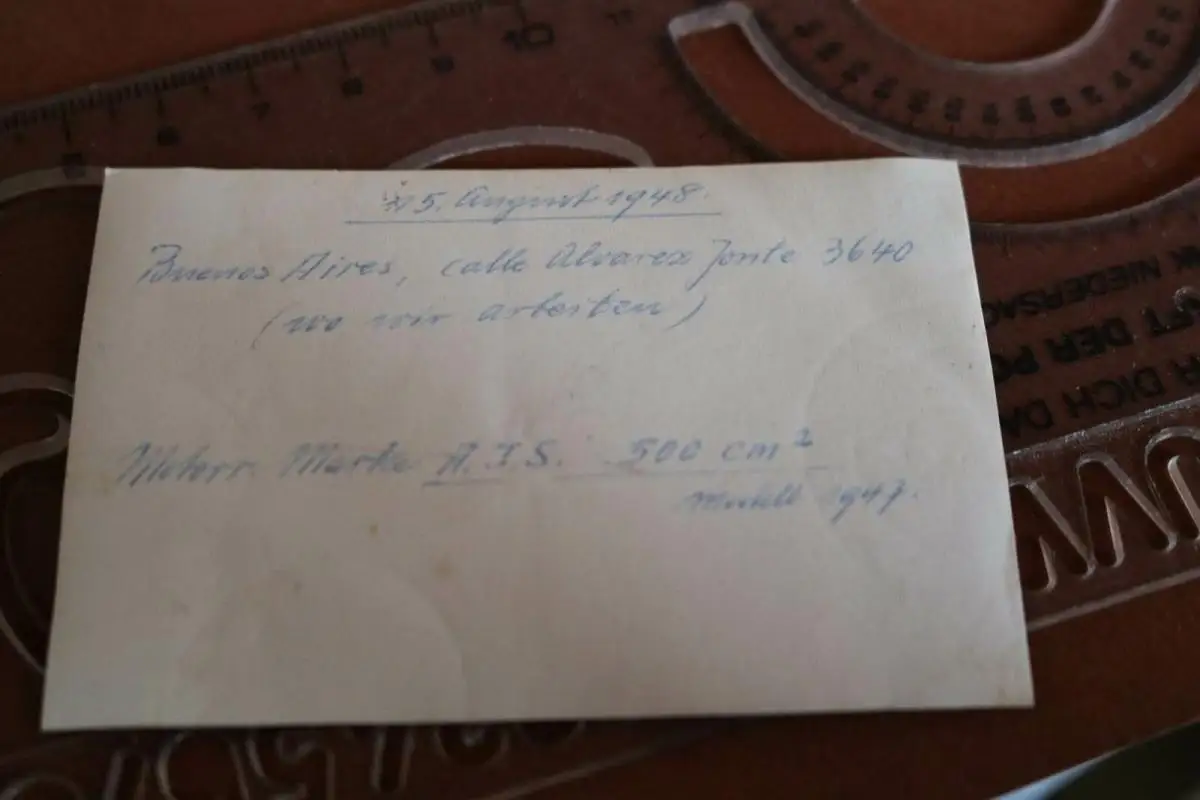 15. August 1948.
Buenos Aires, calle Alvarez Jonte 3640
(wo wir arbeiten)
Motorr. Marke A.J.S. 500 cm³
Modell 1947.
10
NIEDERSAC
FT DER PO
R DICH DA